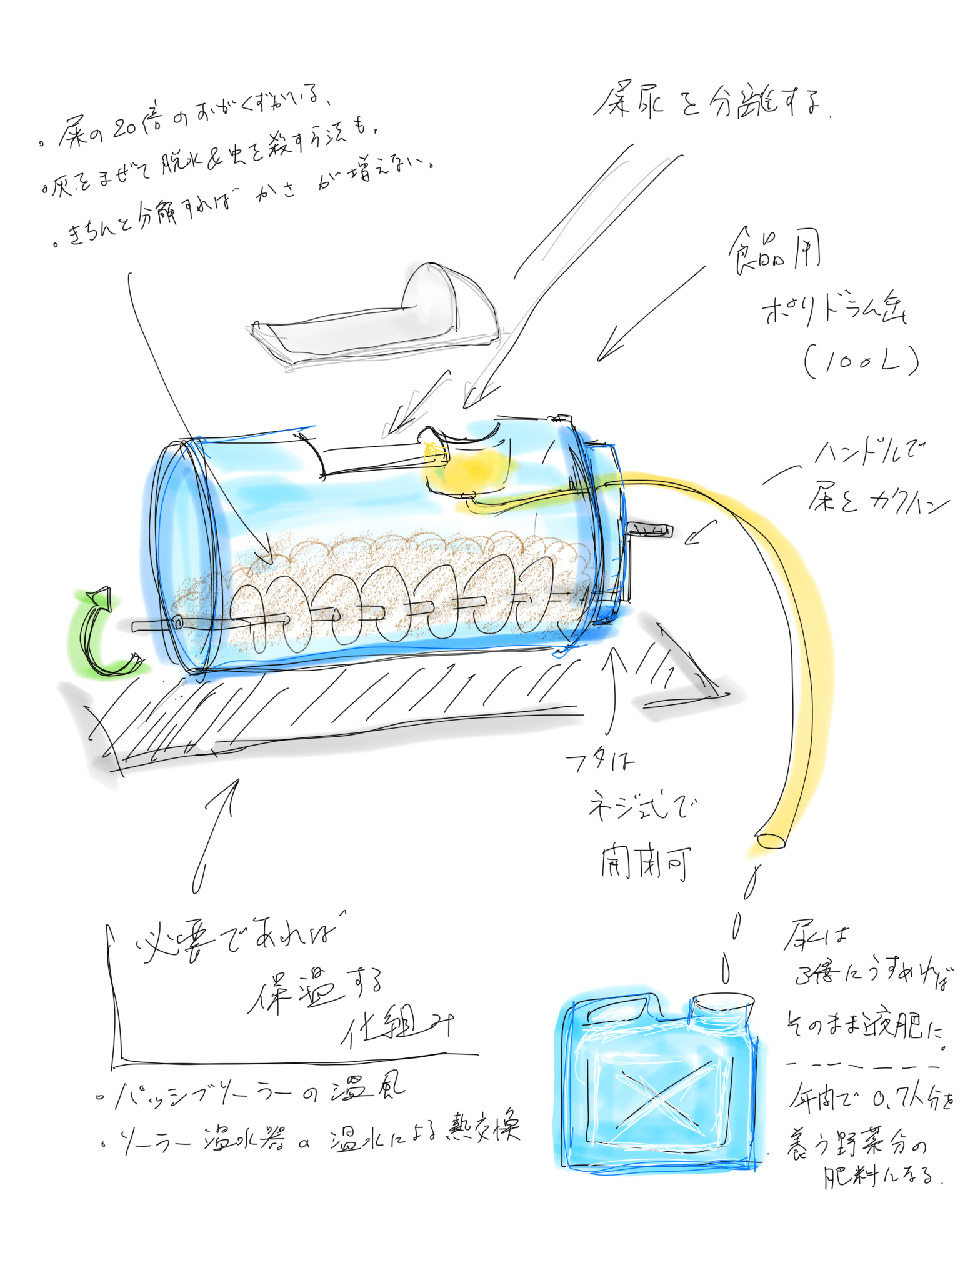 ・屎の20倍のおがくずがいる、
・灰をまぜて脱水&虫を殺す方法も。
・きちんと分解すればかさが増えない。
屎尿を分離する。
食品用
ポリドラム缶
(100L)
ハンドルで
屎をカクハン
フタは
ネジ式で
開閉可
必要であれば
保温する
仕組み
・パッシブソーラーの温風
・ソーラー温水器の温水による熱交換
尿は
3倍にうすめれば
そのまま液肥に。
年間で0.7人分を
養う野菜分の
肥料になる。